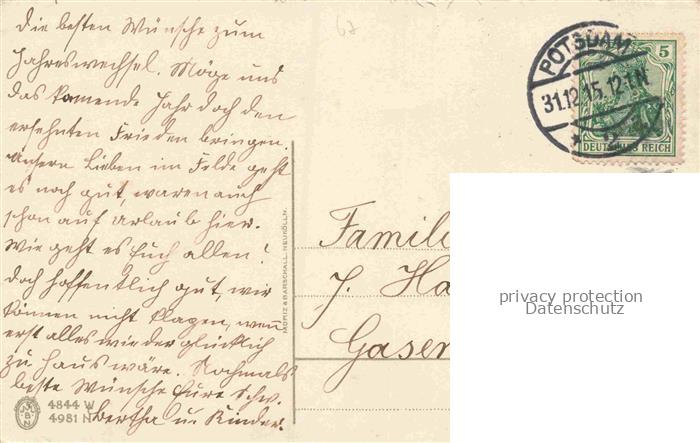 die besten Wünsche zum
Jahreswechsel. Möge uns
das kommende Jahr doch den
ersehnten Frieden bringen.
Unsern Lieben im Felde geht
es noch gut, waren auch
schon auf Urlaub hier.
Wie geht es Euch allen?
doch hoffentlich gut, wir
können nicht klagen, wenn
erst alles wieder glücklich
zu Haus wäre. Nochmals
beste Wünsche Eure Schw.
Bertha u. Kinder.
4844 W
4981 N
MORITZ & BARSCHALL, NEUKÖLLN.
67
POTSDAM
31.12.15. 12-1 N
5
DEUTSCHES REICH
Famili
J. Ha
Gaser
privacy protection
Datenschutz